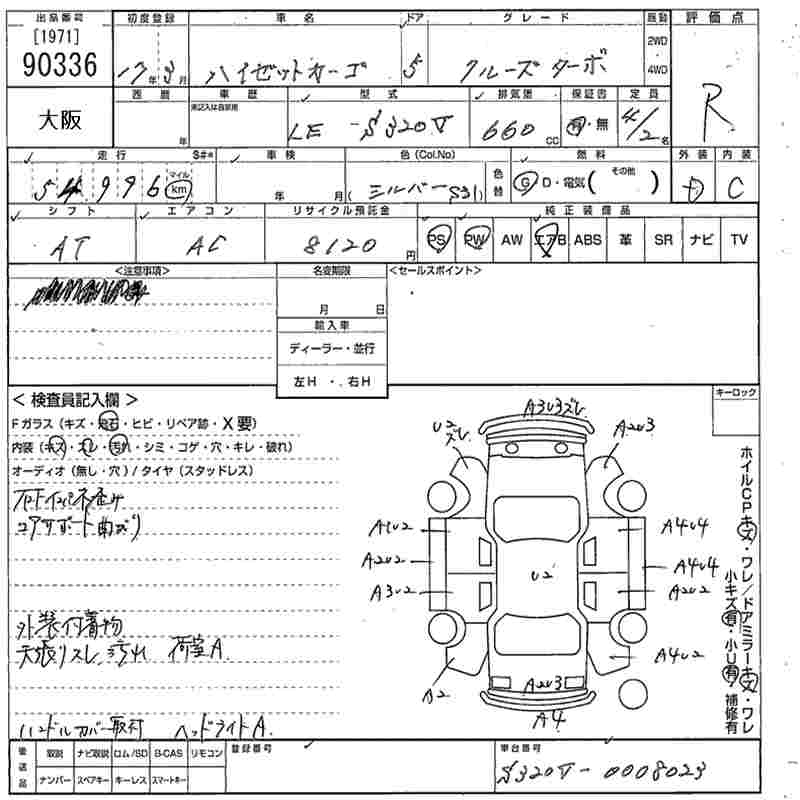 出品番号 初度登録 車名 ドア グレード 駆動 評価点
[1971]
90336 17年3月 ハイゼットカーゴ 5 クルーズターボ 2WD・4WD R
大阪 西暦 車歴 型式 排気量 保証書 定員
未記入は自家用
年 LE-S320V 660cc 有・無 4/2名
走行 S#* 車検 色(Col.No) 色替 燃料 外装 内装
54,996 マイル km 年 月 (シルバー S31) G D・電気( その他 ) D C
シフト エアコン リサイクル預託金 純正装備品
AT AC 8120円 PS PW AW エアB ABS 革 SR ナビ TV
<注意事項> 名変期限 <セールスポイント>
月 日
輸入車
ディーラー・並行
左H・右H
<検査員記入欄> キーロック
Fガラス(キズ・飛石・ヒビ・リペア跡・X要)
内装(キズ・スレ・汚れ・シミ・コゲ・穴・キレ・破れ)
オーディオ(無し・穴)/タイヤ(スタッドレス)
コアサポート曲ズリ
外装付着物
天張りスレ、汚れ 荷室A.
ハンドルカバー取付 ヘッドライトA.
A3U3ズレ
U2ズレ A2U3
A1U2 A4U4
A2U2 A4U4
A3U2 U2 A2U2
A4U2
A2 A2U3
A4
ホイルCPキズ・ワレ/ドアミラーキズ・ワレ
小キズ有・小U有・補修有
後送品 取説 ナビ取説 ロム/SD B-CAS リモコン 登録番号 車台番号
ナンバー スペアキー キーレス スマートキー S320V-0008023